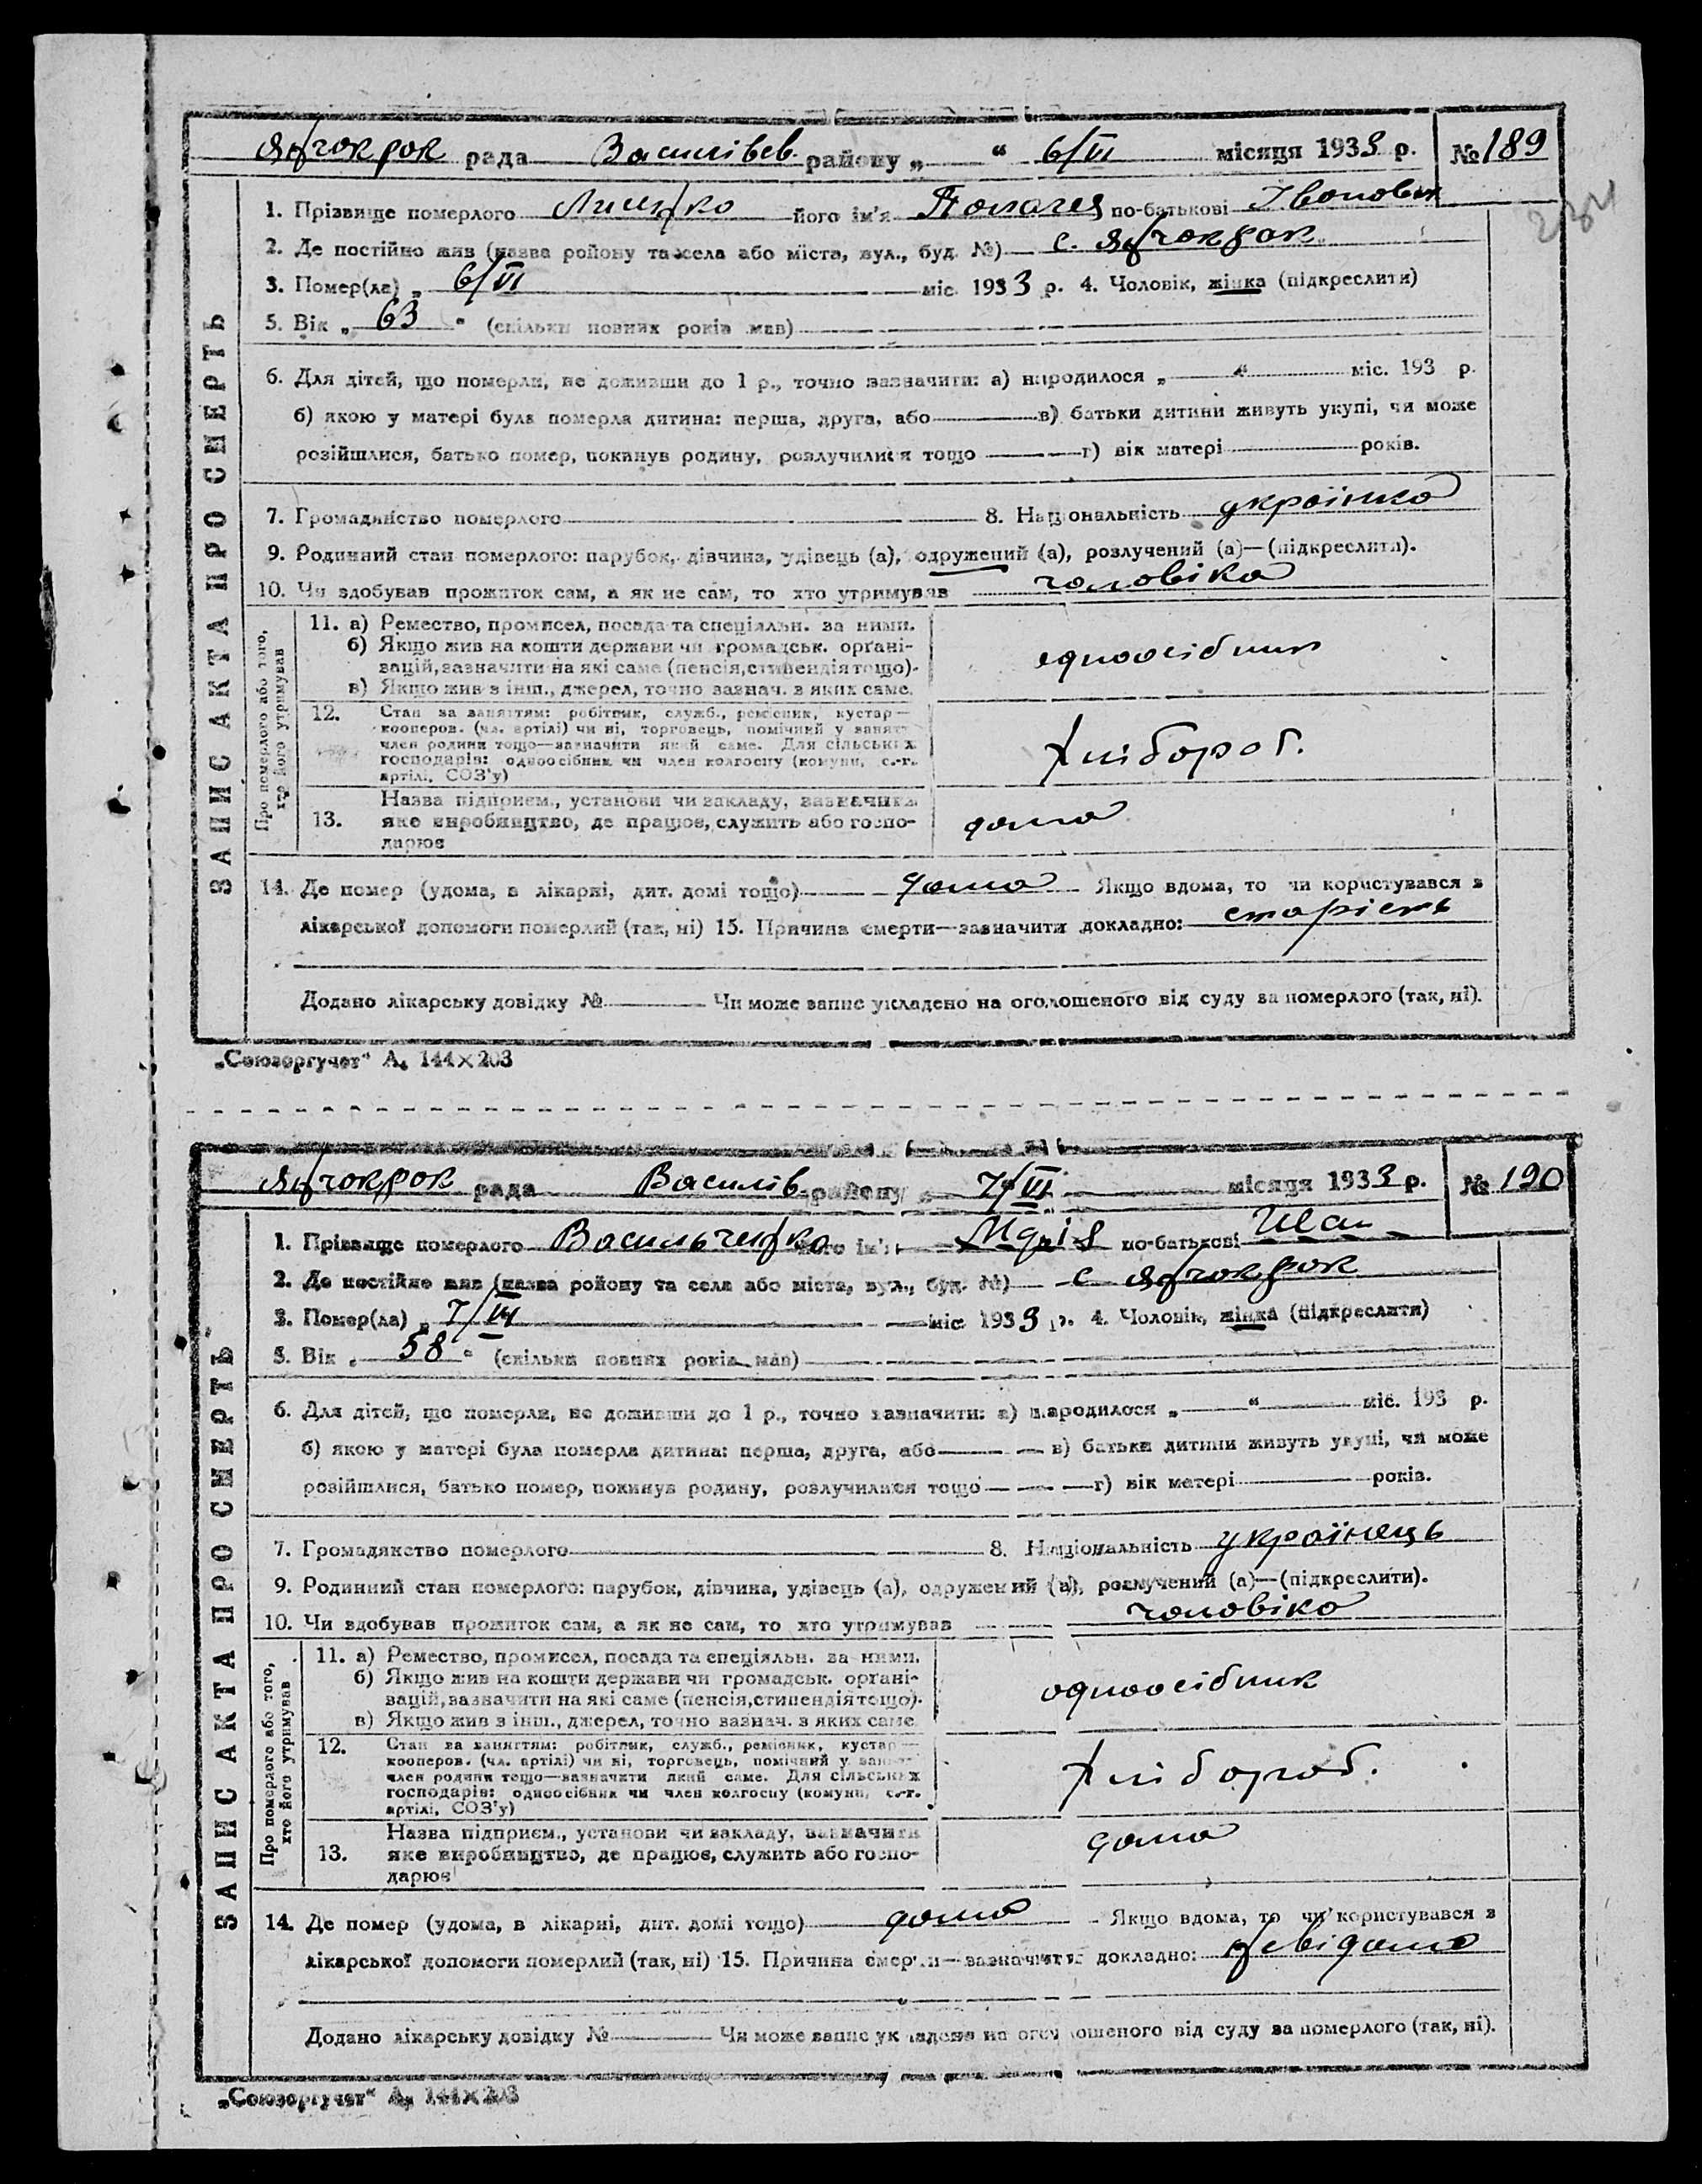 Янчокрок рада Василівсв. району „ “ 6/VI місяця 1933 р. № 189
234
ЗАПИС АКТА ПРО СМЕРТЬ
1. Прізвище померлого його ім'я Полагея по-батькові Івоновна
2. Де постійно жив (назва району та села або міста, вул., буд. №) с. Янчокрок
3. Помер(ла) „ 6/VI міс. 1933 р. 4. Чоловік, жінка (підкреслити)
5. Вік „ 63 “ (скільки повних років мав)
6. Для дітей, що померли, не доживши до 1 р., точно зазначити: а) народилося „ “ міс. 193 р.
б) якою у матері була померла дитина: перша, друга, або в) батьки дитини живуть укупі, чи може
розійшлися, батько помер, покинув родину, розлучилися тощо г) вік матері років.
7. Громадянство померлого 8. Національність українка
9. Родинний стан померлого: парубок, дівчина, удівець (а), одружений (а), розлучений (а)—(підкреслити).
10. Чи здобував прожиток сам, а як не сам, то хто утримував чоловіка
Про померлого або того, хто його утримував
11. а) Ремество, промисел, посада та спеціяльн. за ними.
б) Якщо жив на кошти держави чи громадськ. органі-
зацій, зазначити на які саме (пенсія, стипендія тощо).
в) Якщо жив з інш., джерел, точно зазнач. з яких саме.
одноосібник
12. Стан за заняттям: робітник, служб., ремісник, кустар—
кооперов. (чл. артілі) чи ні, торговець, помічний у занятт
член родини тощо—зазначити який саме. Для сільських
господарів: одноосібник чи член колгоспу (комуни, с.-г.
артілі, СОЗ'у)
Хлібороб.
13. Назва підприєм., установи чи закладу, зазначити
яке виробництво, де працює, служить або госпо-
дарює
дома
14. Де помер (удома, в лікарні, дит. домі тощо) дома Якщо вдома, то чи користувався з
лікарської допомоги померлий (так, ні) 15. Причина смерти—зазначити докладно: старість
Додано лікарську довідку № Чи може запис укладено на оголошеного від суду за померлого (так, ні).
„Союзоргучет“ А₄ 144×203
Янчокрок рада Василів. району „ 7/VI місяця 1933 р. № 190
ЗАПИС АКТА ПРО СМЕРТЬ
1. Прізвище померлого Васильченко його ім'я по-батькові
2. Де постійно жив (назва району та села або міста, вул., буд. №) с Янчокрок
3. Помер(ла) „ 7/VI міс 1933 р. 4. Чоловік, жінка (підкреслити)
5. Вік „ 58 “ (скільки повних років мав)
6. Для дітей, що померли, не доживши до 1 р., точно зазначити: а) народилося „ “ міс. 193 р.
б) якою у матері була померла дитина: перша, друга, або в) батьки дитини живуть укупі, чи може
розійшлися, батько помер, покинув родину, розлучилися тощо г) вік матері років.
7. Громадянство померлого 8. Національність українець
9. Родинний стан померлого: парубок, дівчина, удівець (а), одружений (а), розлучений (а)—(підкреслити).
10. Чи здобував прожиток сам, а як не сам, то хто утримував чоловіко
Про померлого або того, хто його утримував
11. а) Ремество, промисел, посада та спеціяльн. за ними.
б) Якщо жив на кошти держави чи громадськ. органі-
зацій, зазначити на які саме (пенсія, стипендія тощо).
в) Якщо жив з інш., джерел, точно зазнач. з яких саме
одноосібник
12. Стан за заняттям: робітник, служб., ремісник, кустар—
кооперов. (чл. артілі) чи ні, торговець, помічний у занятт
член родини тощо—зазначити який саме. Для сільських
господарів: одноосібник чи член колгоспу (комуни, с.-г.
артілі, СОЗ'у)
Хлібороб.
13. Назва підприєм., установи чи закладу, зазначити
яке виробництво, де працює, служить або госпо-
дарює
дома
14. Де помер (удома, в лікарні, дит. домі тощо) дома Якщо вдома, то чи користувався з
лікарської допомоги померлий (так, ні) 15. Причина смерти—зазначити докладно: невідомо
Додано лікарську довідку № Чи може запис укладено на оголошеного від суду за померлого (так, ні).
„Союзоргучет“ А₄ 144×203